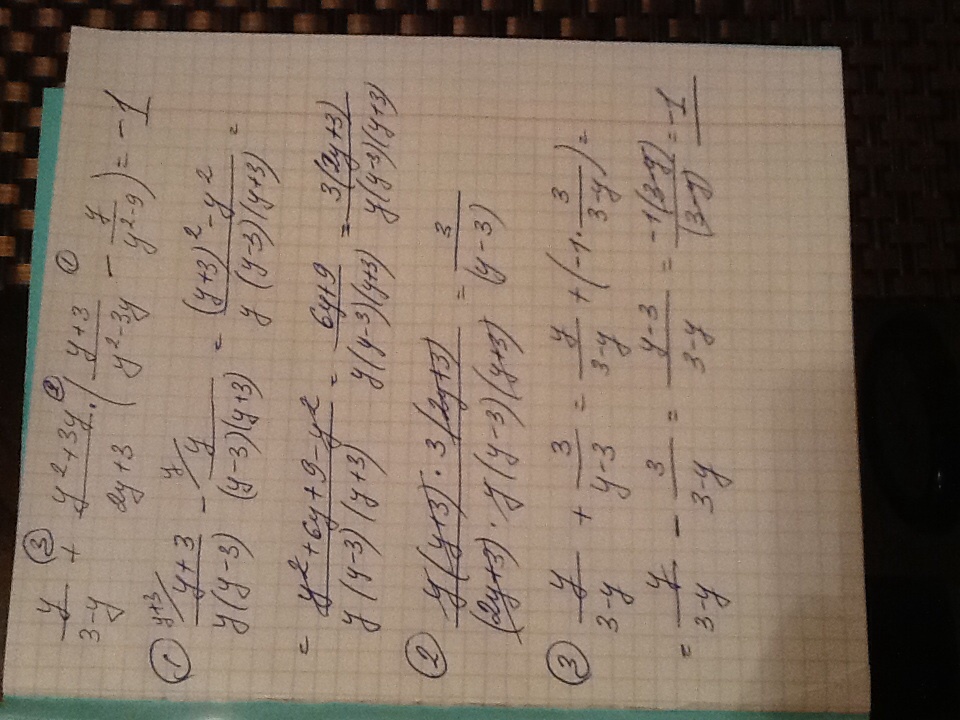 y/(3-y) ③ + (y²+3y)/(2y+3) ② · ( (y+3)/(y²-3y) ① - y/(y²-9) ) = -1
① y+3/ (y+3)/(y(y-3)) - y/ y/((y-3)(y+3)) = ((y+3)²-y²)/(y(y-3)(y+3)) =
= (y²+6y+9-y²)/(y(y-3)(y+3)) = (6y+9)/(y(y-3)(y+3)) = 3(2y+3)/(y(y-3)(y+3))
② (y(y+3)·3(2y+3))/((2y+3)·y(y-3)(y+3)) = 3/(y-3)
③ y/(3-y) + 3/(y-3) = y/(3-y) + (-1·3/(3-y)) =
= y/(3-y) - 3/(3-y) = (y-3)/(3-y) = -1(3-y)/(3-y) = -1